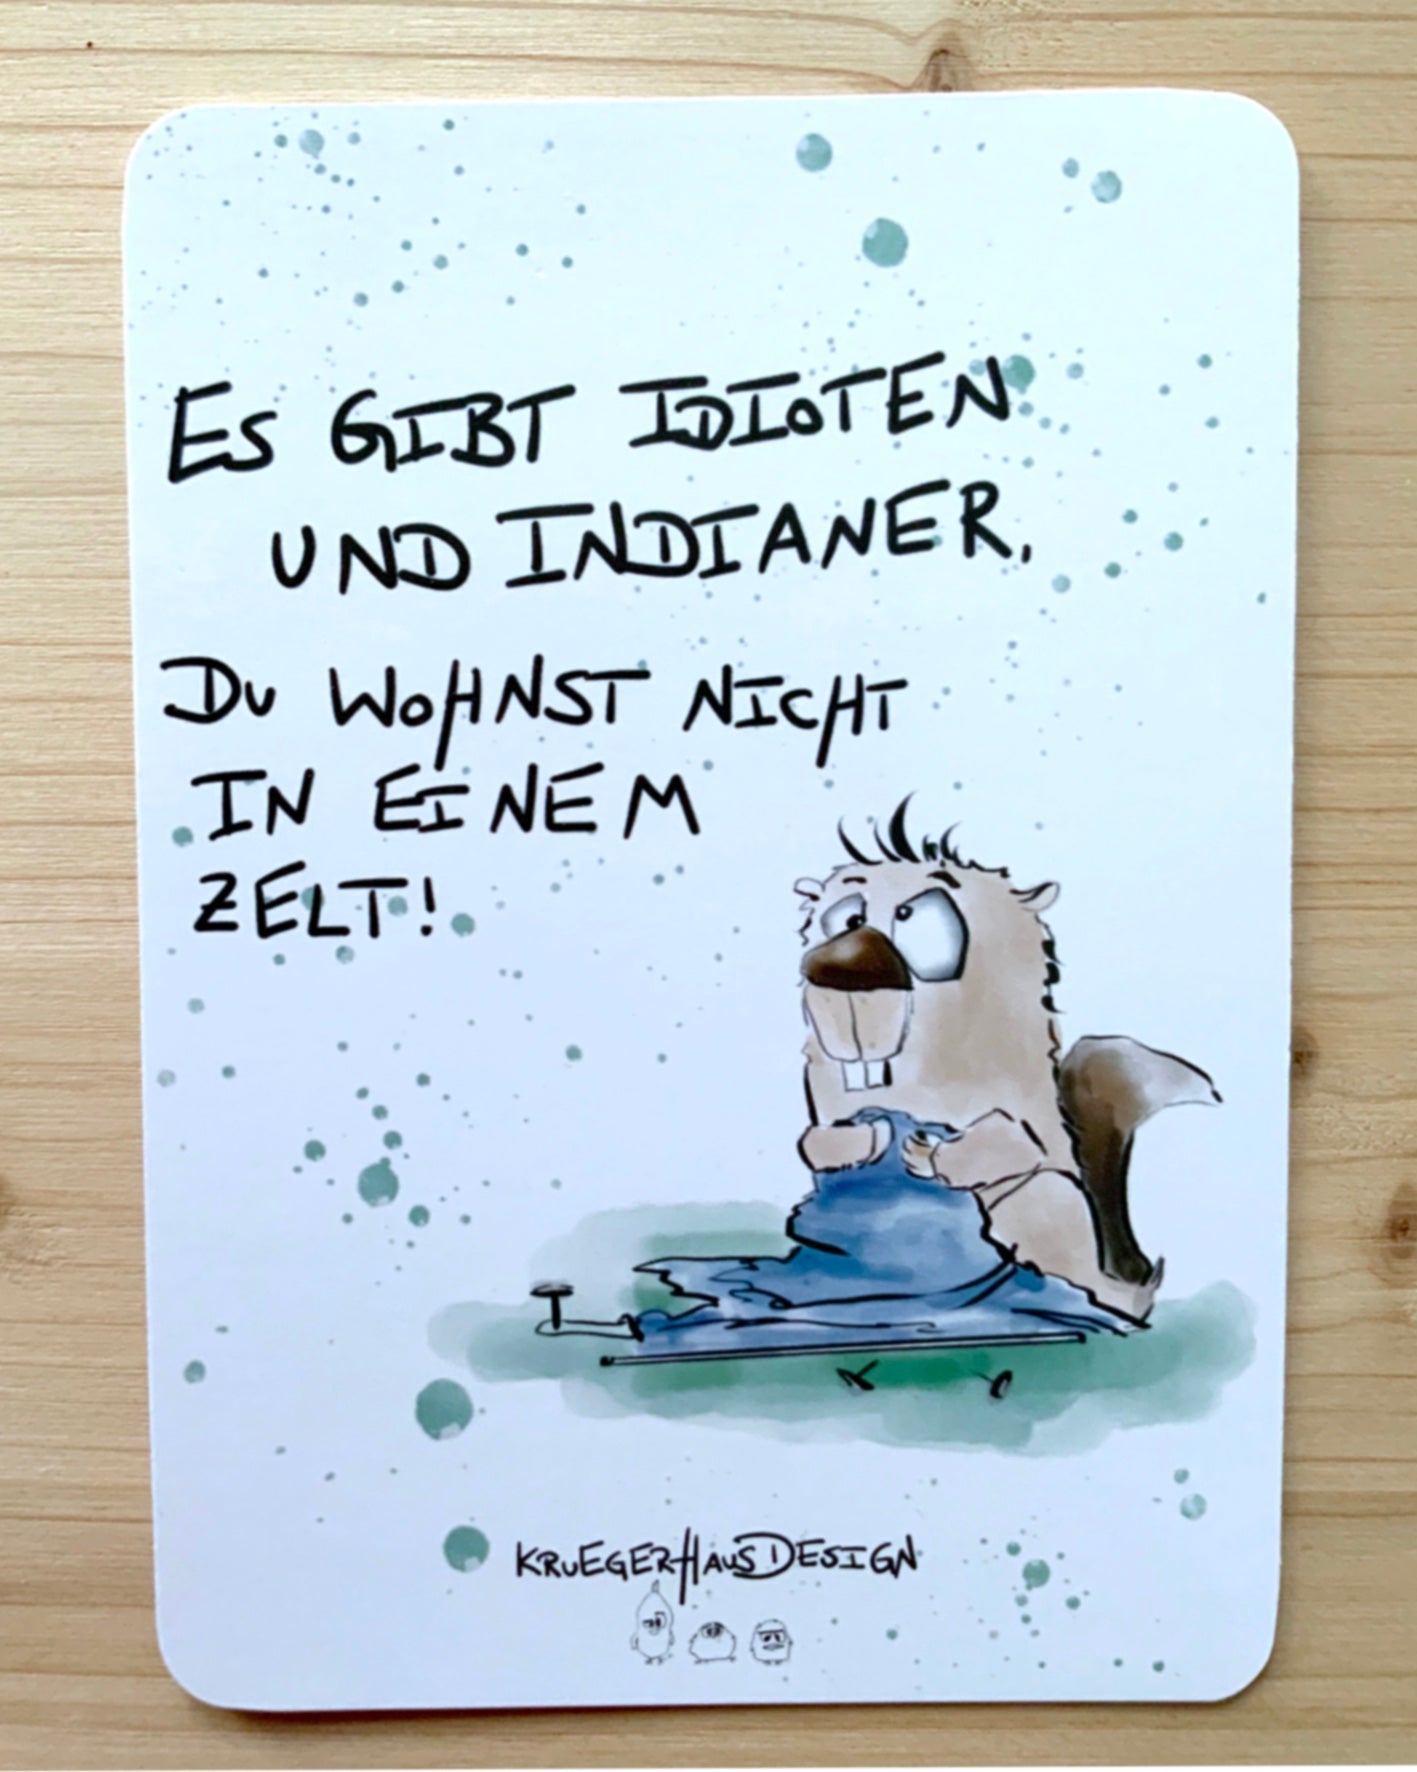 ES GIBT IDIOTEN
UND INDIANER.
DU WOHNST NICHT
IN EINEM
ZELT!
KRUEGERHAUSDESIGN